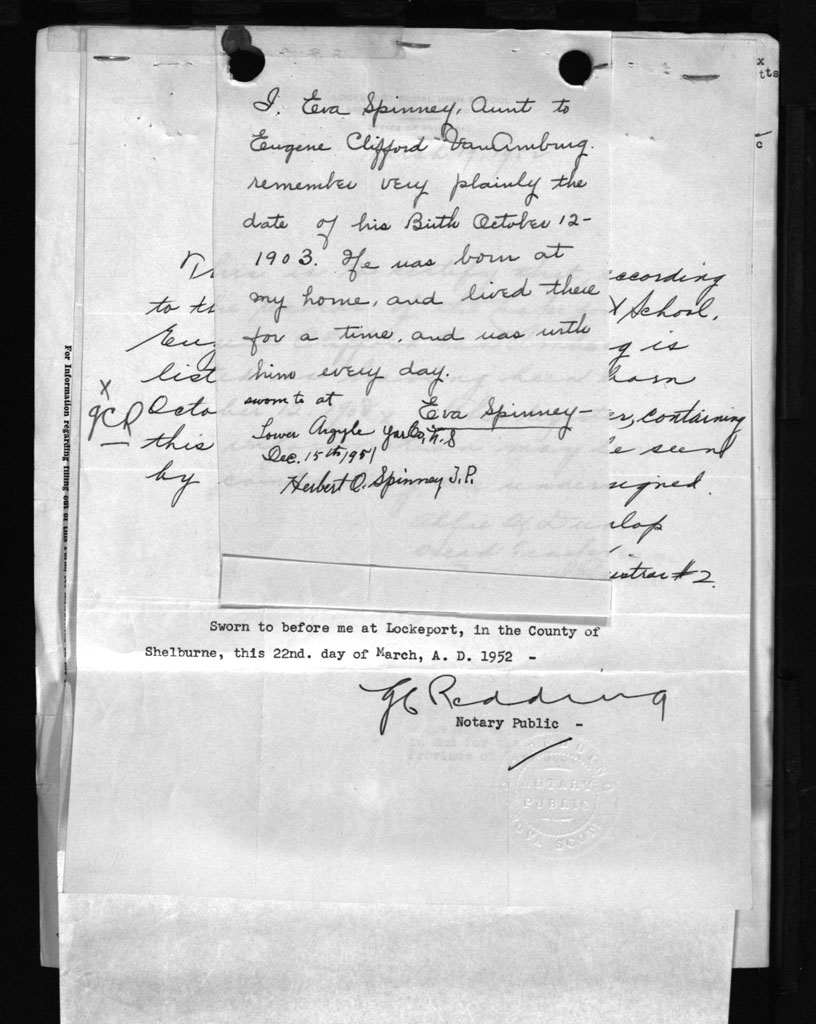 I, Eva Spinney, Aunt to
Eugene Clifford VanAmburg.
remember very plainly the
date of his Birth October 12-
1903. He was born at
my home, and lived there
for a time, and was with
him every day.
sworn to at
Eva Spinney-
Lower Argyle Yar Co, N.S
Dec. 15th 1951
Herbert O. Spinney J.P.
This is to certify that according
to th
School,
Eu
g is
list
born
Octo
containing
this
be seen
by
signed.
lop
istrar #2.
x
gCR
x
tts
c
For Information regarding filling out of this
Sworn to before me at Lockeport, in the County of
Shelburne, this 22nd. day of March, A. D. 1952 -
GC Redding
Notary Public -
in and for the
Province of
NOTARY
PUBLIC
NOVA SCOTIA